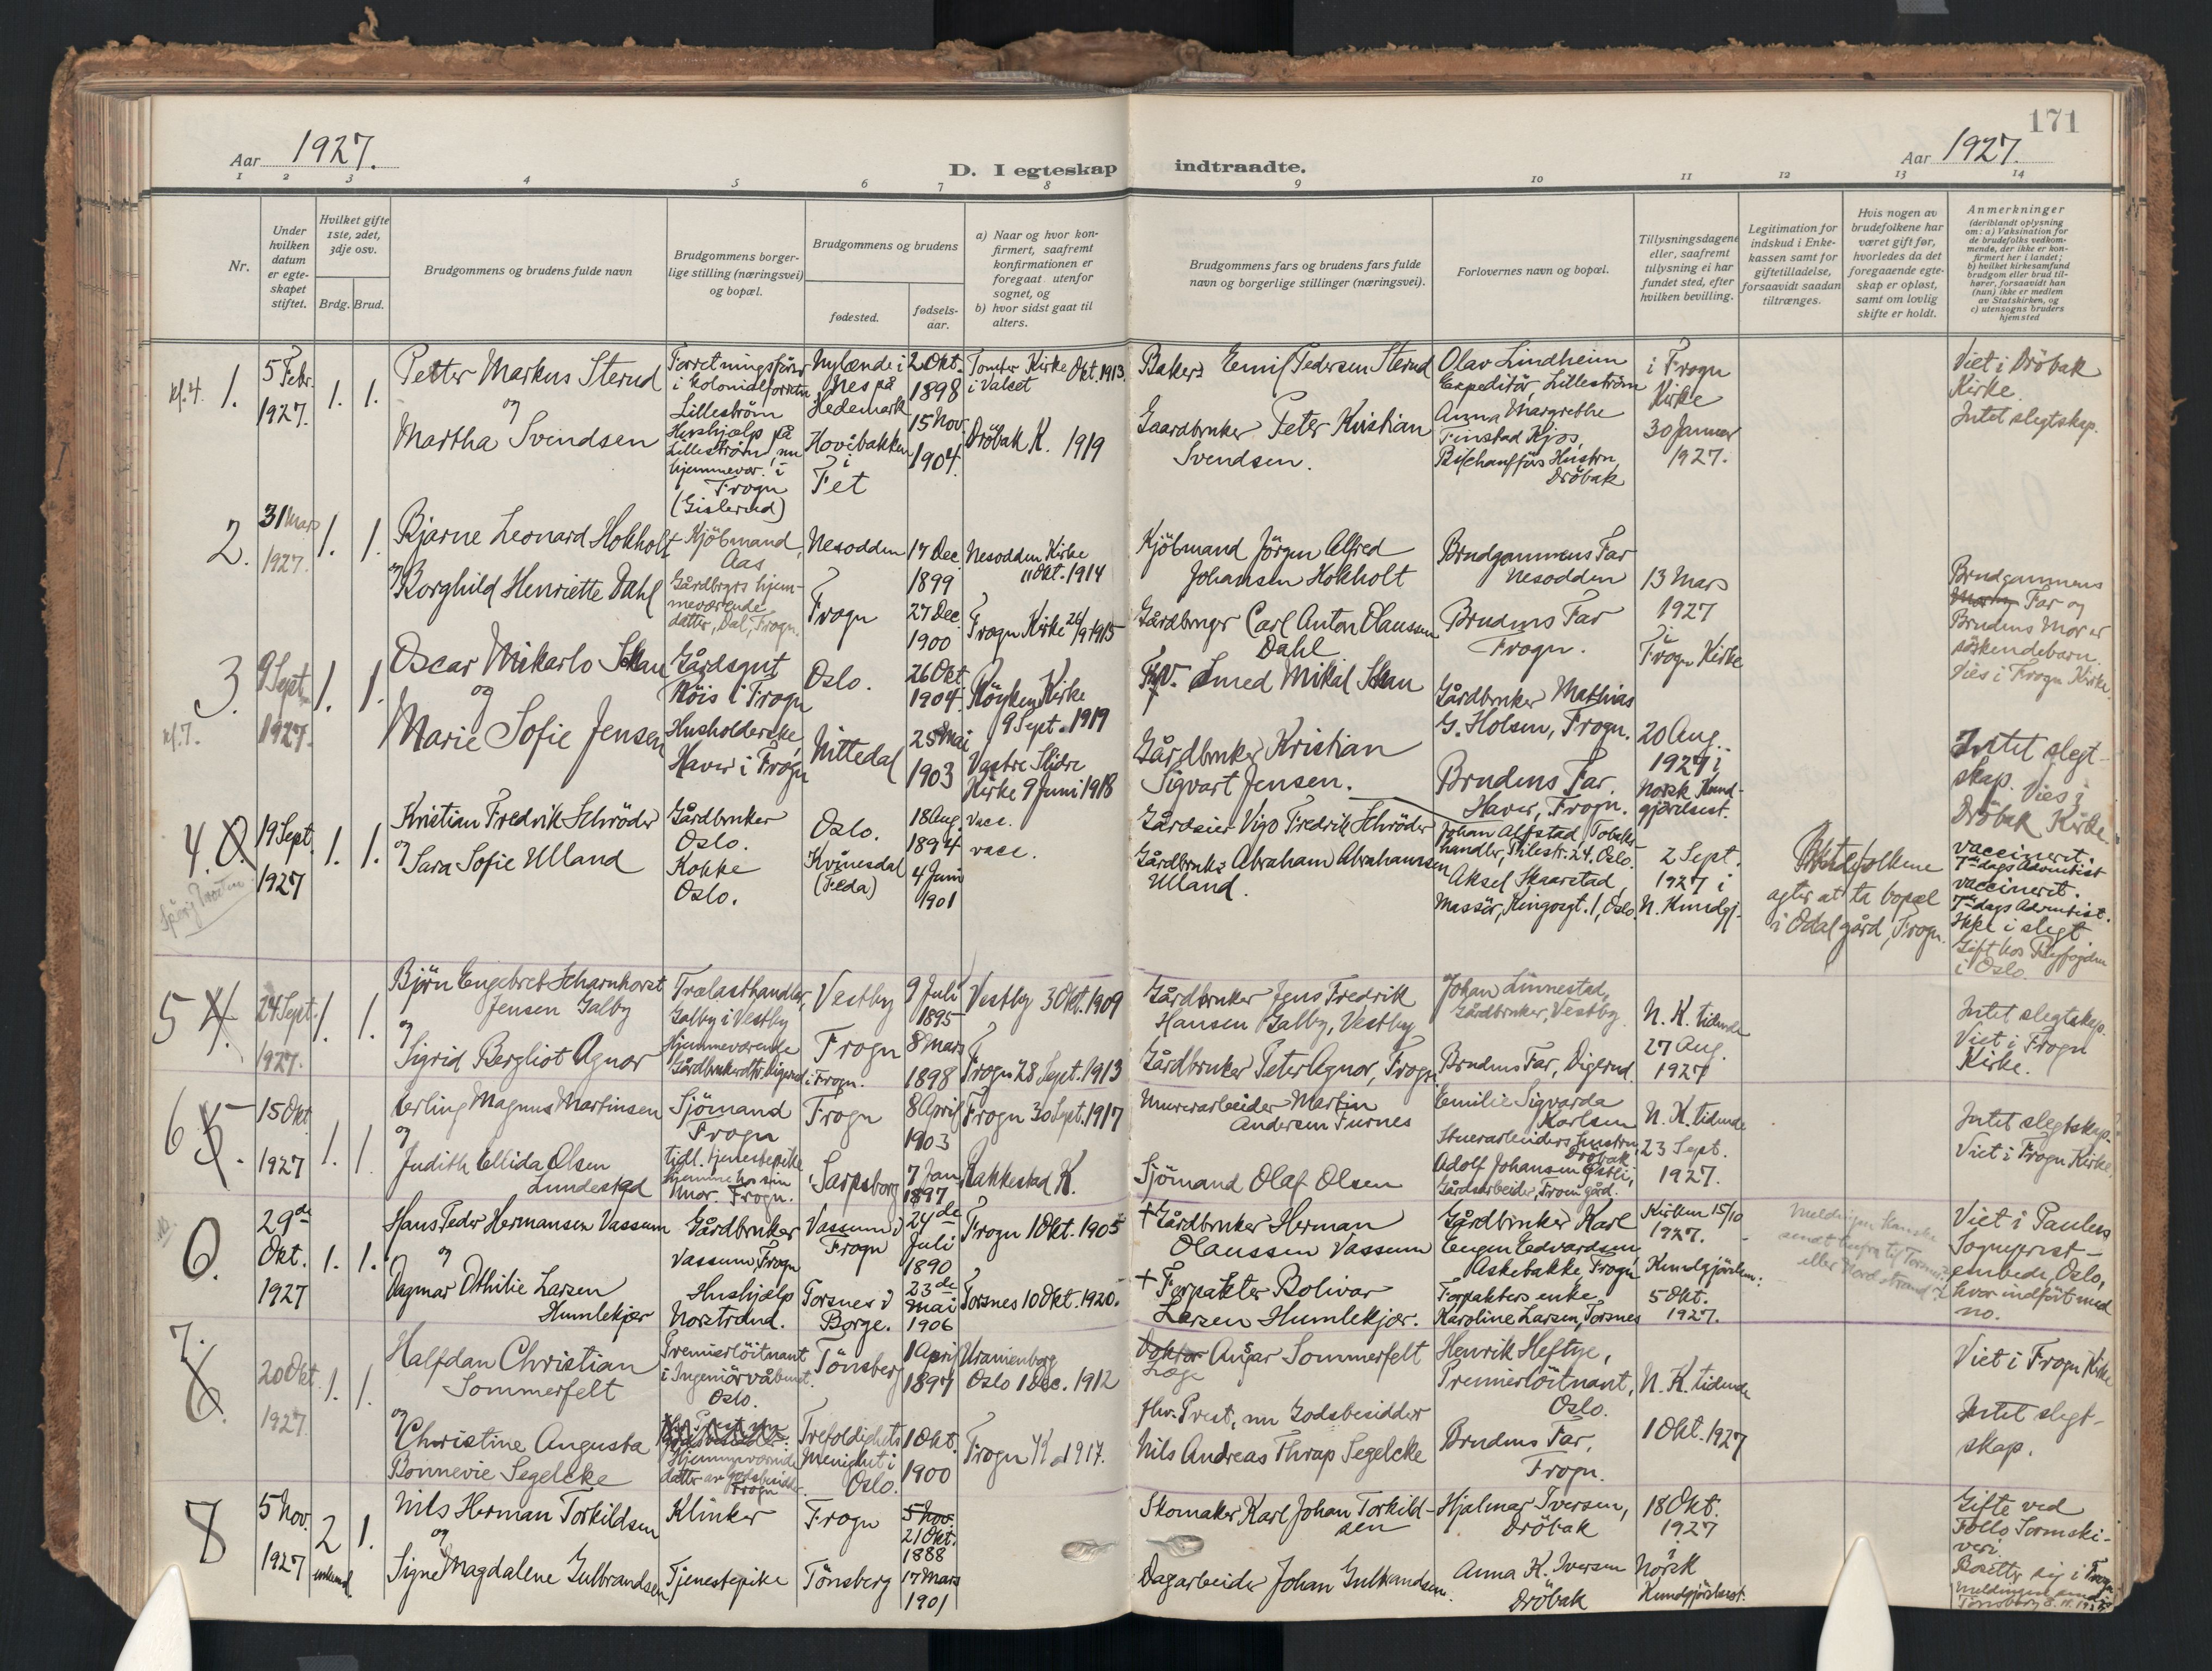 171
Aar 1927.
D. I egteskap indtraadte.
Aar 1927.
1 2 3 4 5 6 7 8 9 10 11 12 13 14
Nr.
Under
hvilken
datum
er egte-
skapet
stiftet.
Hvilket gifte
1ste, 2det,
3dje osv.
Brdg. Brud.
Brudgommens og brudens fulde navn
Brudgommens borger-
lige stilling (næringsvei)
og bopæl.
Brudgommens og brudens
fødested.
fødsels-
aar.
a) Naar og hvor kon-
firmert, saafremt
konfirmationen er
foregaat utenfor
sognet, og
b) hvor sidst gaat til
alters.
Brudgommens fars og brudens fars fulde
navn og borgerlige stillinger (næringsvei).
Forlovernes navn og bopæl.
Tillysningsdagene
eller, saafremt
tillysning ei har
fundet sted, efter
hvilken bevilling.
Legitimation for
indskud i Enke-
kassen samt for
giftetilladelse,
forsaavidt saadan
tiltrænges.
Hvis nogen av
brudefolkene har
været gift før,
hvorledes da det
foregaaende egte-
skap er opløst,
samt om lovlig
skifte er holdt.
Anmerkninger
(deriblandt oplysning
om: a) Vaksination for
de brudefolks vedkom-
mende, der ikke er kon-
firmert her i landet;
b) hvilket kirkesamfund
brudgom eller brud til-
hører, forsaavidt han
(hun) ikke er medlem
av Statskirken, og
c) utensogns bruders
hjemsted
kl. 4. 1.
5 Febr.
1927.
1. 1.
Petter Markus Sterud
og
Martha Svendsen
Forretningsfører
i kolonialforretn.
Lilleström
Hushjælp på
Lilleström, nu
hjemmevær. i
Frogn
(Gislerud)
Nylænde i
Nes på
Hedemark
Hovibakken
i
Fet
2 Okt.
1898
15 Nov.
1904.
Tomter Kirke Okt. 1913.
i Valset
Dröbak K. 1919
Baker Emil Pedersen Sterud
Gaardbruker Peter Kristian
Svendsen.
Olav Lindheim
Expeditör, Lilleström
Anna Margrethe
Finstad Kjos,
Bilchaufförs Hustru,
Dröbak
i Frogn
Kirke
30 Januar
1927.
Viet i Dröbak
Kirke.
Intet slegtskap.
2.
31 Mars
1927.
1. 1.
Bjarne Leonard Hokholt
og
Borghild Henriette Dahl
Kjöbmand,
Aas
Gårdbrgrs hjem-
meværende
datter, Dal, Frogn.
Nesodden
Frogn
17 Dec.
1899
27 Dec.
1900
Nesodden Kirke
11 Okt. 1914
Frogn Kirke 26/9 1915
Kjöbmand Jörgen Alfred
Johansen Hokholt
Gårdbrugr Carl Anton Olaussen
Dahl
Brudgommens Far
Nesodden
Brudens Far
Frogn.
13 Mars
1927
i
Frogn Kirke
Brudgommens
Far og
Brudens Mor er
söskendebarn.
Vies i Frogn Kirke.
3.
kl. 7.
9 Sept.
1927.
1. 1.
Oscar Mikarlo Skau
og
Marie Sofie Jensen
Gårdsgut
Röis i Frogn
Husholderske,
Haver i Frogn
Oslo.
Nittedal
26 Okt
1904.
25 Mai
1903
Röyken Kirke
9 Sept. 1919
Vastre Slidre
Kirke 9 Juni 1918
Fhv. Smed Mikal Skau
Gårdbruker Kristian
Sigvart Jensen.
Gårdbruker Mathias
G. Holsen, Frogn.
Brudens Far.
Haver, Frogn.
20 Aug.
1927 i
Norsk Kund-
gjörelsest.
Intet slegt-
skap. Vies i
Dröbak Kirke
4.
19 Sept.
1927
1. 1.
Kristian Fredrik Schröder
og
Sara Sofie Ulland
Gårdbruker
Oslo.
Kokke
Oslo.
Oslo.
Kvinesdal
(Feda)
18 Aug.
1894
4 Juni
1901
vacc.
vacc.
Gårdeier Vigo Fredrik Schröder
Gårdbruker Abraham Abrahamsen
Ulland.
Johan Alfstad, Tobaks-
handler, Thilestr. 24. Oslo.
Aksel Skaarstad,
Massör, Kingosgt. 1, Oslo.
2 Sept.
1927 i
N. Kundgj.
Brudefolkene
agter at ta bopæl
i Odal gård, Frogn.
vaccineret.
7de dags Adventist
vaccineret.
7de dags Adventist.
Ikke i slegt
Gift hos Byfogden
i Oslo.
5
24 Sept.
1927.
1. 1.
Björn Engebret Scharnhorst
Jensen Galby
og
Sigrid Bergliot Agnor
Trælasthandler,
Galby i Vestby
Hjemmeværende
Gårdbrukerdtr. Digerud i Frogn.
Vestby
Frogn
9 Juli
1895
8 Mars
1898
Vestby 3 Okt. 1909
Frogn 28 Sept. 1913
Gårdbruker Jens Fredrik
Hansen Galby, Vestby
Gårdbruker Peter Agnor, Frogn.
Johan Linnestad,
Gårdbruker, Vestby.
Brudens Far, Digerud
N. K. tidende
27 Aug.
1927
Intet slegtskap.
Viet i Frogn
Kirke.
6
15 Okt
1927
1. 1.
Erling Magnus Martinsen
og
Judith Ellida Olsen
Lundestad
Sjömand
Frogn
tidl. tjenestepike
hjemme hos sin
mor. Frogn.
Frogn
Sarpsborg
8 April
1903
7 Jan.
1897
Frogn 30 Sept. 1917
Rakkestad K.
Murerarbeider Martin
Andersen Furnes
Sjömand Olaf Olsen
Emilie Sigvarda
Karlsen
Stuerarbeiders Hustru
Dröbak
Adolf Johansen Östli,
Gårdsarbeider, Froen gård.
N. K. tidende
23 Sept.
1927.
Intet slegtskap.
Viet i Frogn Kirke
6.
29de
Okt.
1927
1. 1.
Hans Peder Hermansen Vassum
og
Dagmar Othilie Larsen
Humlekjær
Gårdbruker
Vassum, Frogn
Hushjælp
Norstrand.
Vassum i
Frogn
Torsnes i
Borge.
24de
Juli
1890
23de
Mai
1906
Frogn 1 Okt. 1905
Torsnes 10 Okt. 1920.
+ Gårdbruker Herman
Olaussen Vassum
+ Forpakter Bolivar
Larsen Humlekjær.
Gårdbruker Karl
Eugen Edvardsen,
Askebakke Frogn
Forpakters enke
Karoline Larsen, Torsnes
Kirken 15/10
1927.
Kundgjörelsen:
5 Okt.
1927.
Viet i Paulus
Sogneprest-
embede, Oslo,
hvor indfört med
no.
7.
20 Okt
1927
1. 1.
Halfdan Christian
Sommerfelt
og
Christine Augusta
Bonnevie Segelcke
Premierlöitnant
i Ingeniörvåbnet.
Oslo.
Hjemmeværende
datter av godsbesidder.
Frogn
Tönsberg
Trefoldighets
Menighet i
Oslo.
1 April
1897
1 Okt.
1900
Uranienborg
Oslo 1 Dec. 1912
Frogn K 1917.
Doktor Ansgar Sommerfelt
Læge
fhv. Prest, nu Godsbesidder
Nils Andreas Thrap Segelcke
Henrik Heftye,
Premierlöitnant,
Oslo.
Brudens Far,
Frogn.
N. K. tidende
1 Okt. 1927
Viet i Frogn Kirke
Intet slegt-
skap.
8
5 Nov.
1927
2 1.
enkemd.
Nils Herman Torkildsen
og
Signe Magdalene Gulbrandsen
Klinker
Tjenestepike
Frogn
Tönsberg
5 Nov.
21 Okt.
1888
17 Mars
1901
Skomaker Karl Johan Torkild-
sen
Dagarbeider Johan Gulbrandsen.
Hjalmar Iversen,
Dröbak
Anna K. Iversen
Dröbak
18 Okt.
1927
i
Norsk
Kundgjörelsest.
Gifte ved
Follo Sorenskri-
veri.
Bosetter sig i Frogn